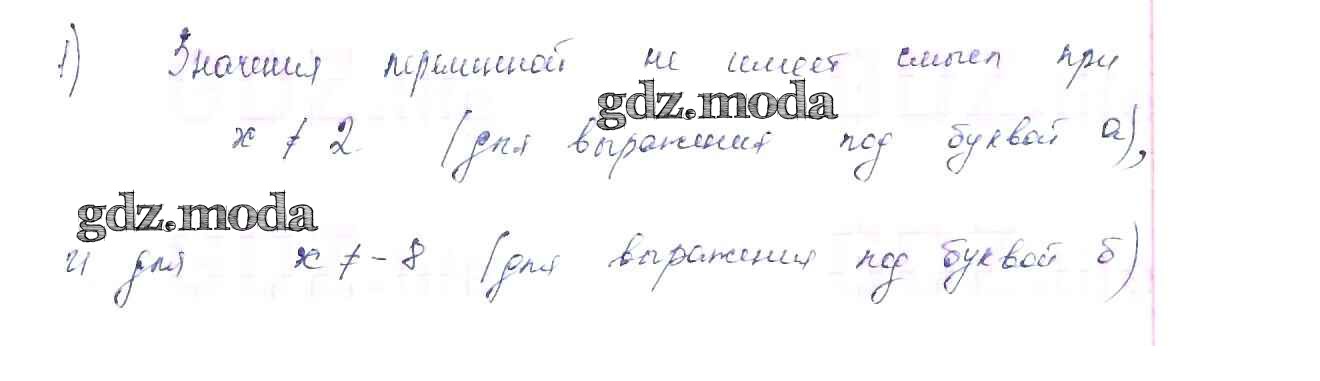 1) Значения переменной не имеет смысл при
gdz.moda
x ≠ 2 (для выражения под буквой а),
gdz.moda
и для x ≠ -8 (для выражения под буквой б)